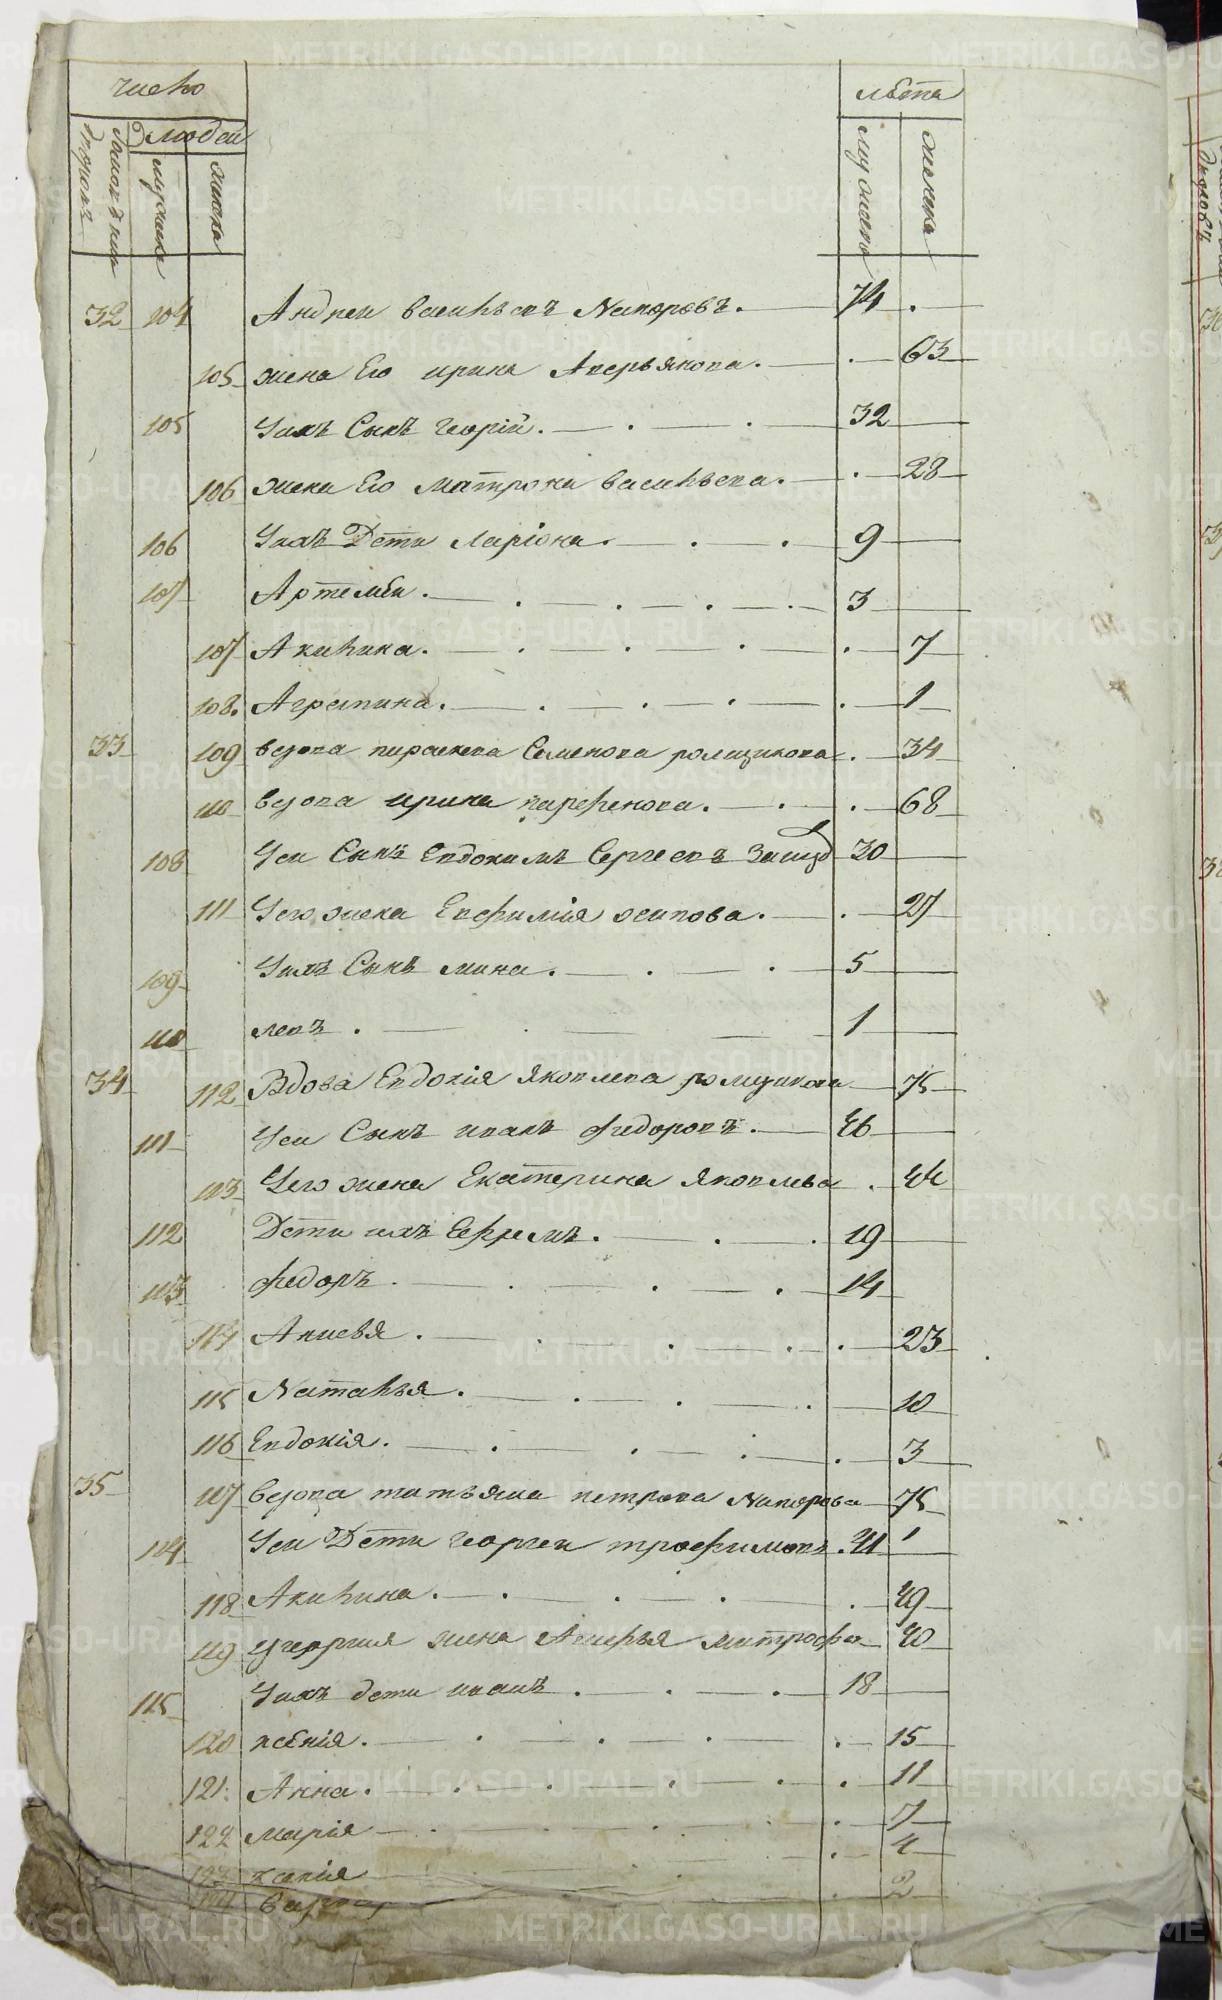 число
лѣта
людей
мужеска
женска
мужеска
женска
32 104 Андреи васильевъ 74
105 жена Его ирина Аверьянова 63
105 Уихъ Сынъ Георгій 32
106 жена Его матрона васильева 28
106 Уихъ Дети Ларіонъ 9
107 Артемѣи 3
107 Акилина 7
108 Агрепина 1
33 109 вдова параскева Семенова ромщикова 34
110 вдова ирина парфенова 68
108 Уеи Сынъ Евдокимъ Сергеевъ 30
111 Уего жена Евфимія осипова 27
109 Уихъ Сынъ мина 5
110 левъ 1
34 112 Вдова Евдокія Яковлева ромщикова 75
111 Уеи Сынъ иванъ Федоровъ 46
113 Уего жена Екатерина Яковлева 44
112 Дети ихъ Ефремъ 19
113 Федоръ 14
114 23
115 Наталья 10
116 Евдокія 3
35 117 вдова татьяна петрова 75
114 Уеи Дети георгеи трофимовъ 41
118 Акилина 49
119 Угеоргия жена 40
115 Уихъ дети иванъ 18
120 ксенія 15
121 Анна 11
122 марія 7
123 4
124 2
METRIKI.GASO-URAL.RU